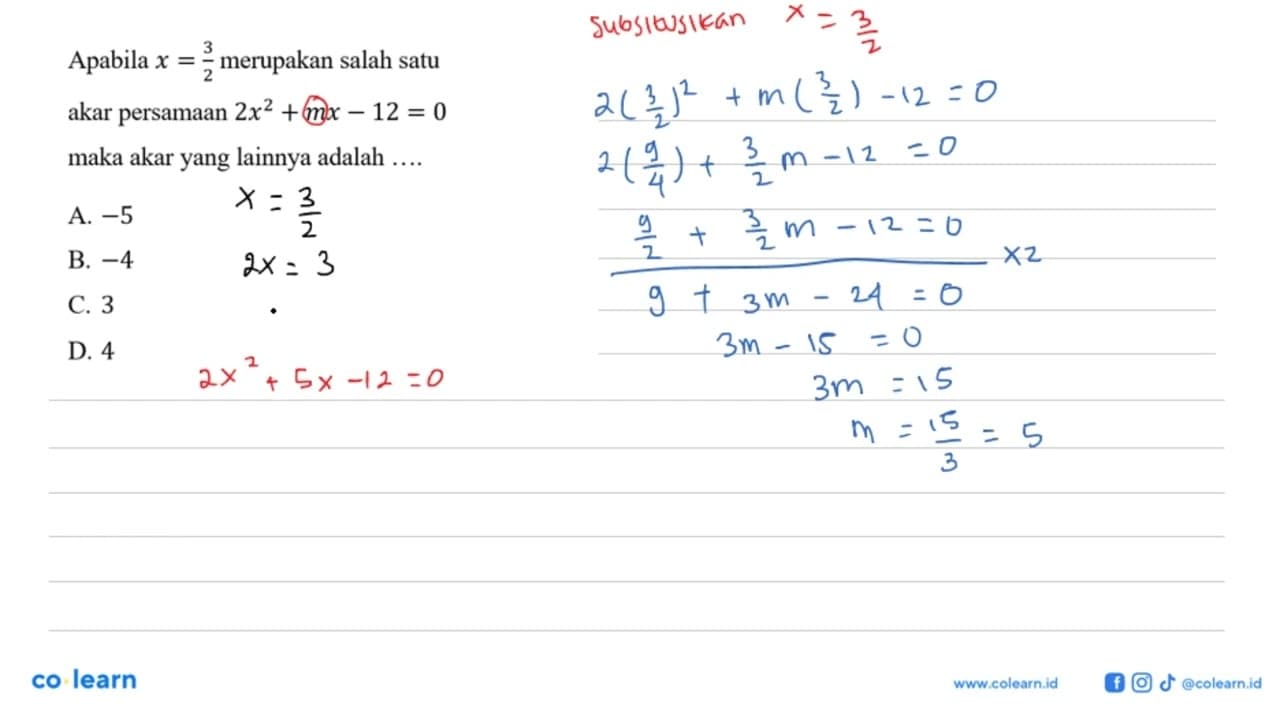 Apabila x = 3/2 merupakan salah satu
akar persamaan 2x² + mx − 12 = 0
maka akar yang lainnya adalah ….
A. −5
B. −4
C. 3
D. 4
x = 3/2
2x = 3
2x² + 5x − 12 = 0
Subsitusikan x = 3/2
2(3/2)² + m(3/2) − 12 = 0
2(9/4) + 3/2 m − 12 = 0
9/2 + 3/2 m − 12 = 0
×2
9 + 3m − 24 = 0
3m − 15 = 0
3m = 15
m = 15/3 = 5
co·learn
www.colearn.id
@colearn.id